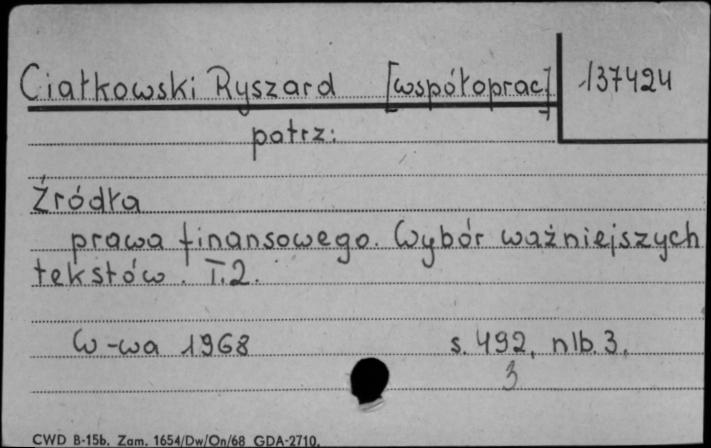 Ciałkowski Ryszard [współoprac] 137424
patrz:
Źródła
prawa finansowego. Wybór ważniejszych
tekstów. T.2.
W-wa 1968 s. 492, nlb. 3,
3
CWD B-15b. Zam. 1654/Dw/On/68 GDA-2710.